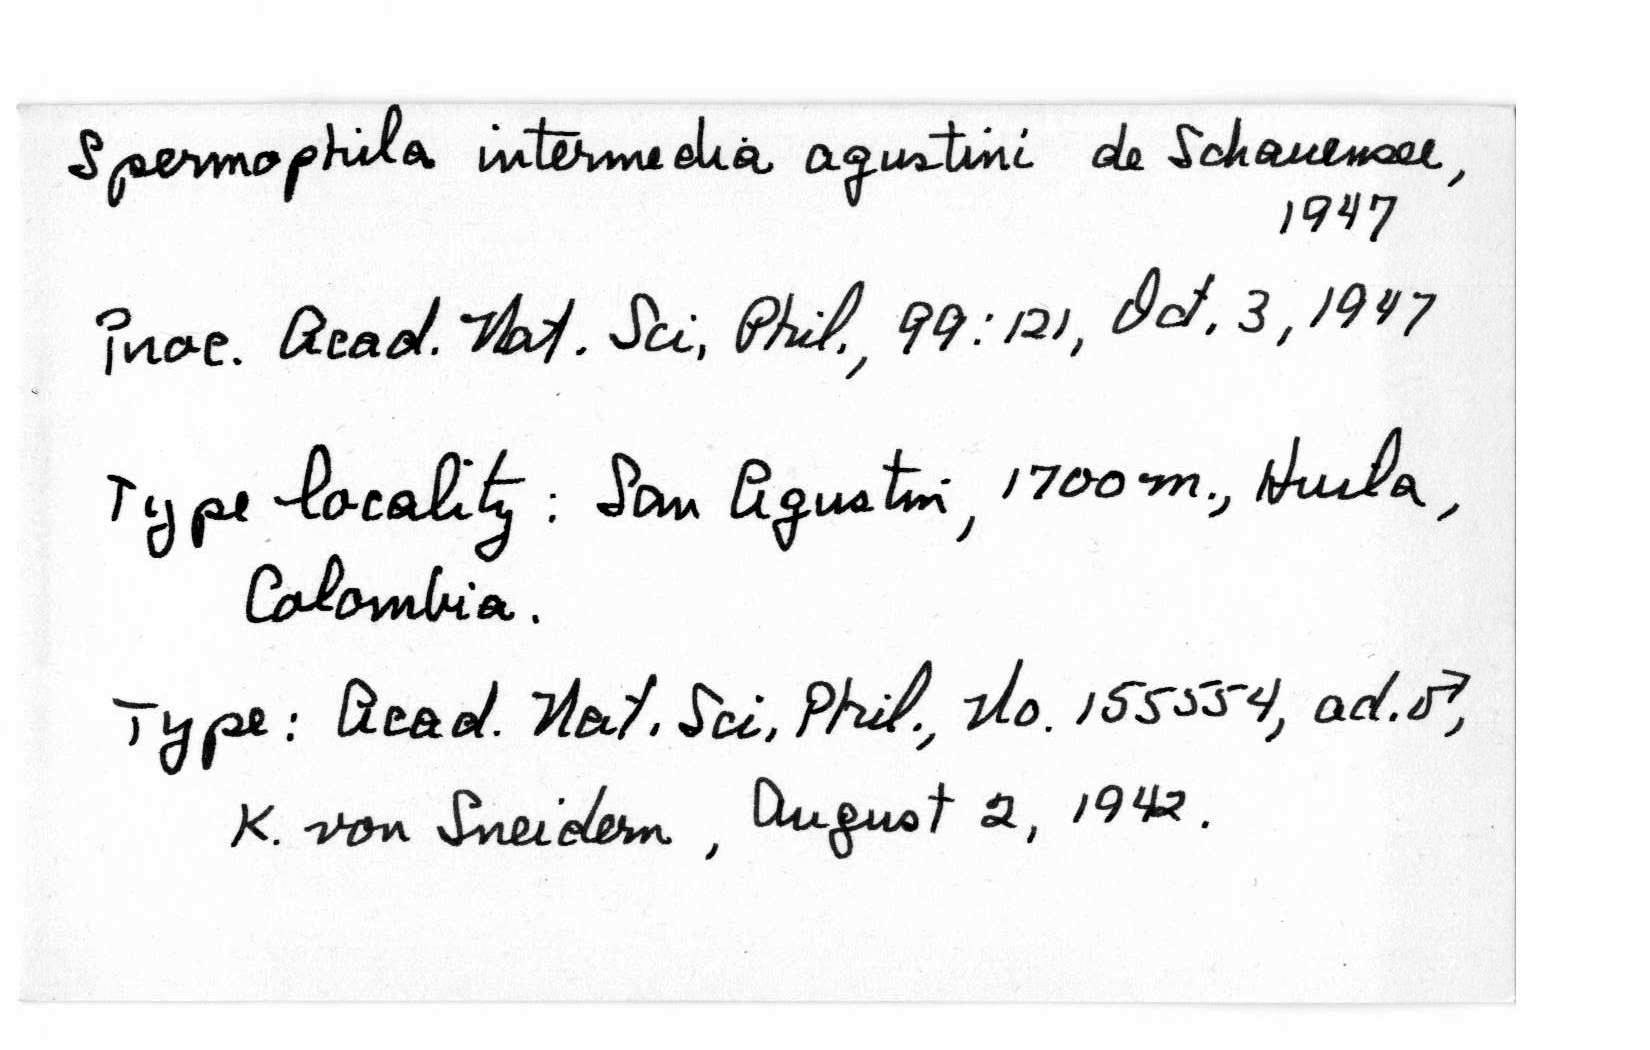 Spermophila intermedia agustini de Schauensee,
1947
Proc. Acad. Nat. Sci, Phil., 99:121, Oct. 3, 1947
Type locality: San Agustin, 1700 m., Huila,
Colombia.
Type: Acad. Nat. Sci, Phil., No. 155554, ad. ♂,
K. von Sneidern, August 2, 1942.